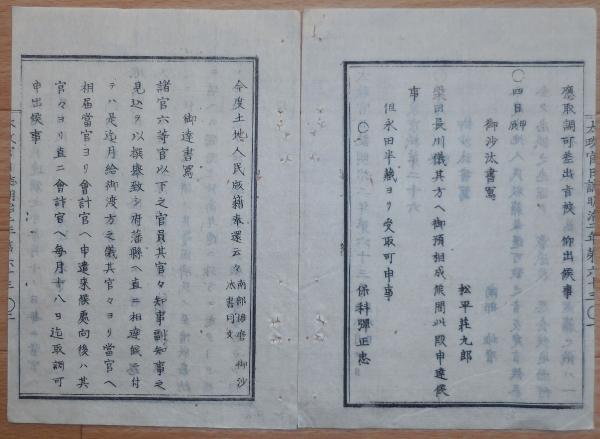 應取調可差出旨被 仰出候事
〇四日
御沙汰書寫
松平莊九郎
梁田長川儀其方ヘ御預相成候間此段申達候
事
但永田半藏ヨリ受取可申事
〇
保科彈正忠
太政官日誌明治二年第六十三
今度土地人民版籍奉還云々
御沙汰書同文
御達書寫
諸官六等官以下之官員其官々知事副知事之
見込ヲ以撰擧致シ府藩縣ヘ直ニ相達候ニ付
テハ是迄月給御渡方之儀其官々ヨリ當官ヘ
相届當官ヨリ會計官ヘ申遣來候處向後ハ其
官々ヨリ直ニ會計官ヘ毎月十八日迄取調可
申出候事